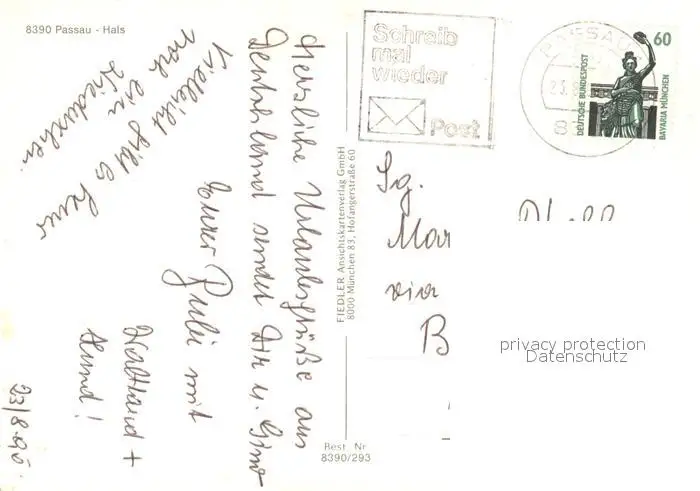 8390 Passau - Hals
Herzliche Urlaubsgrüße aus
Deutschland sendet Dir u. Gino
Eurer mit
+
Hund!
Vielleicht gibt es heuer
noch ein
Wiedersehen.
23/8.90
FIEDLER Ansichtskartenverlag GmbH
8000 München 83, Hofangerstraße 60
Best. Nr.
8390/293
Schreib
mal
wieder
Post
PASSAU
23.
8
60
DEUTSCHE BUNDESPOST
BAVARIA MÜNCHEN
Sg.
Mar
via
B
privacy protection
Datenschutz